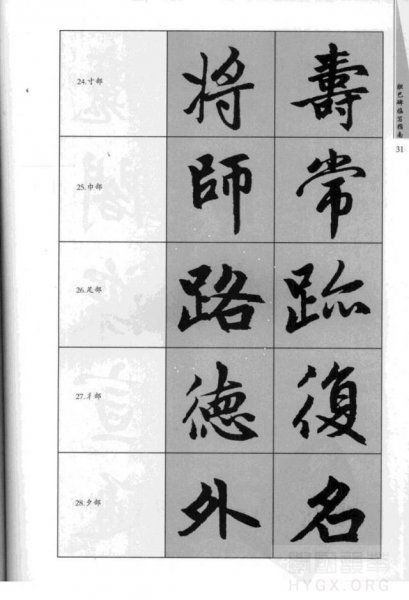 24.寸部 将 壽
25.巾部 師 常
26.足部 路 跡
27.彳部 德 復
28.夕部 外 名
胆巴碑临写指南
31
HYGX.ORG